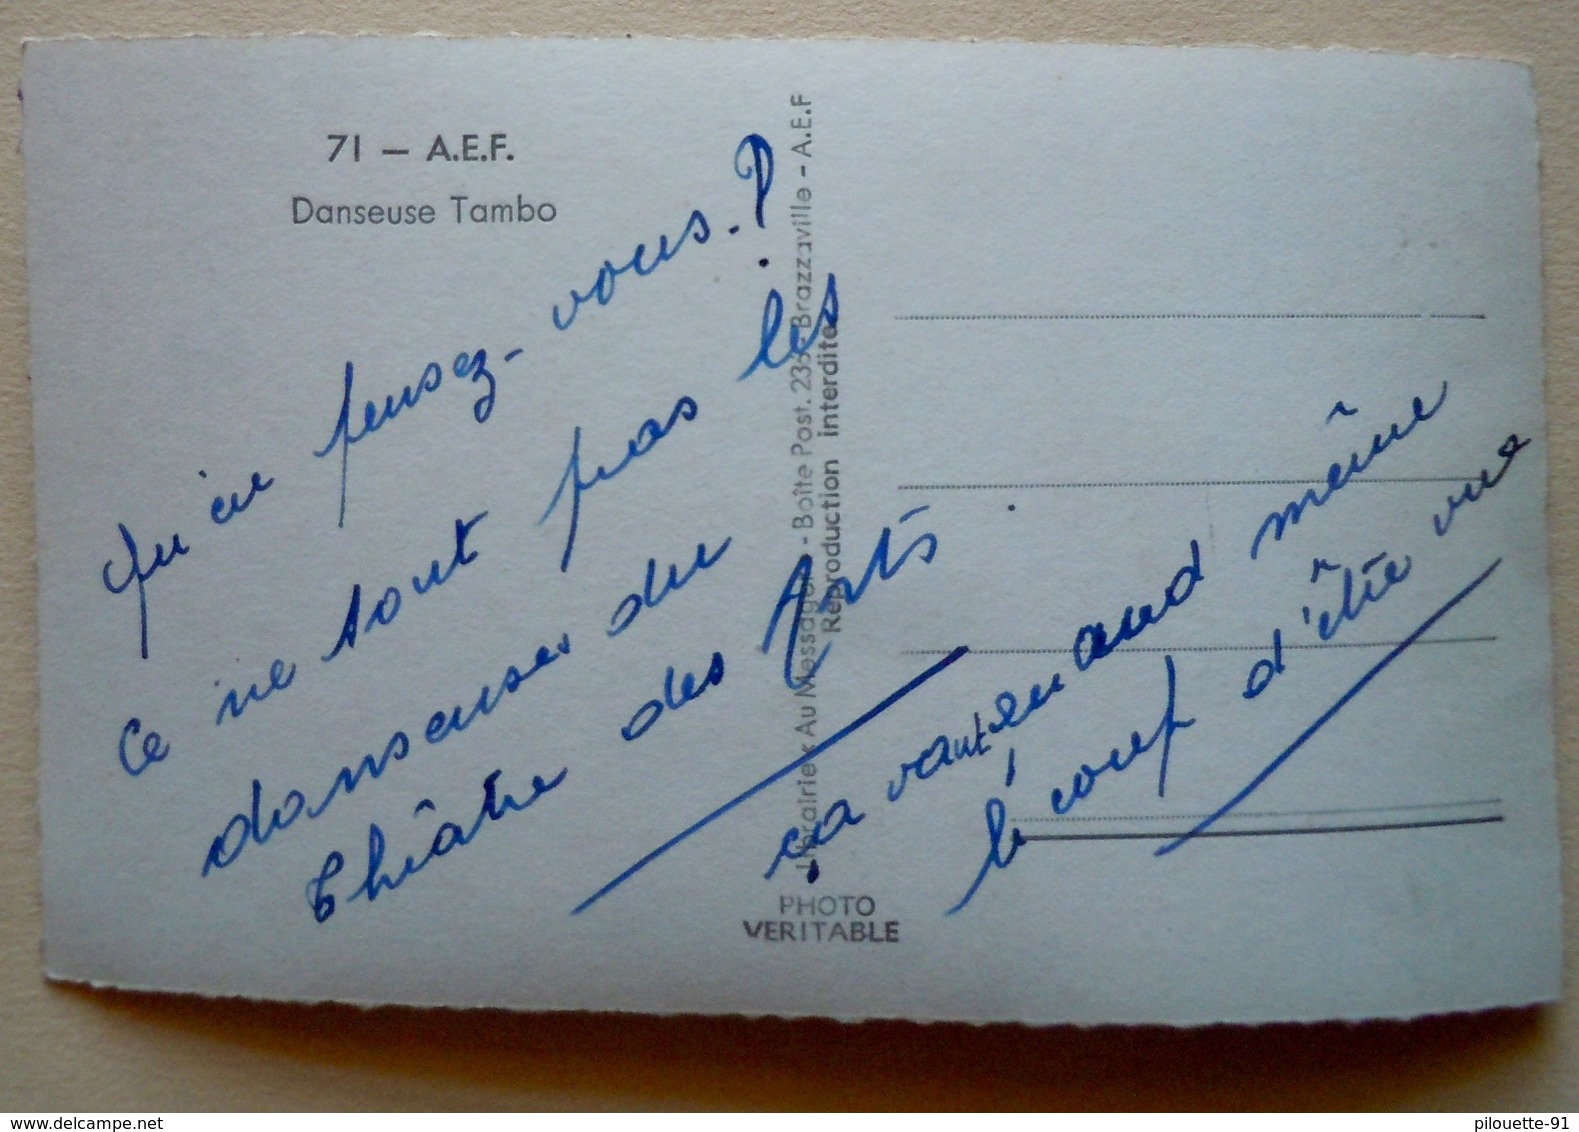 71 — A.E.F.
Danseuse Tambo
Qu'en pensez-vous.?
Ce ne sont pas les
danseuses du
Théâtre des Arts
ça vaut quand même
le coup d'être vue
Librairie Au Messager - Boîte Post. 236 - Brazzaville - A.E.F
Reproduction interdite
PHOTO
VERITABLE
www.delcampe.net
pilouette-91